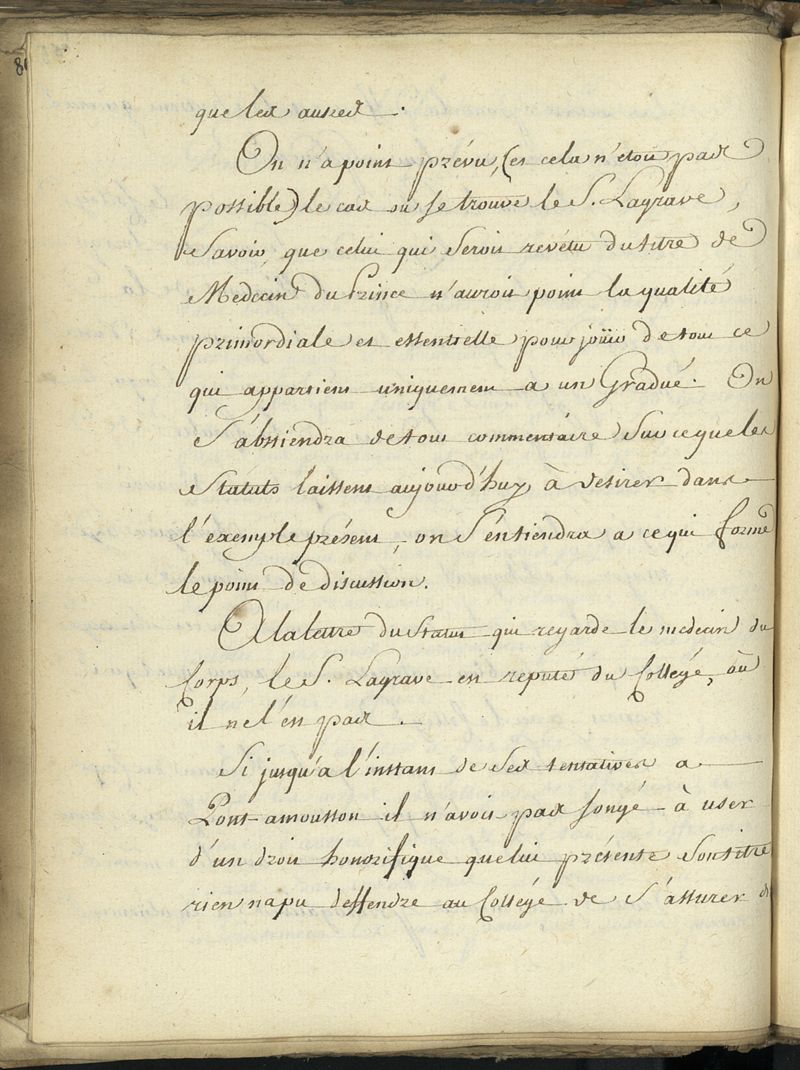 que les autres.
On n'a point prévu, (et cela n'etoit pas
possible) le cas ou se trouve le S. Lagrave,
Savoir, que celui qui Seroit revétu du titre de
Medecin du Prince n'auroit point la qualité
primordiale et essentielle pour joüir de tout ce
qui appartient uniquement a un Gradué. On
S'abstiendra de tout commentaire Sur ce que les
Statuts laissent aujourd'huy à desirer dans
l'exemple présent, on S'entiendra a ce qui forme
le point de discussion.
A la lettre du Statut qui regarde le medecin du
Corps, le S. Lagrave en reputé du Collége, où
il ne l'en pas.
Si jusqu'a l'instant de Ses tentatives a
Pont-amousson il n'avoit pas songé à user
d'un droit honorifique que lui présente Son titre
rien n'a pu deffendre au Collége de S'assurer